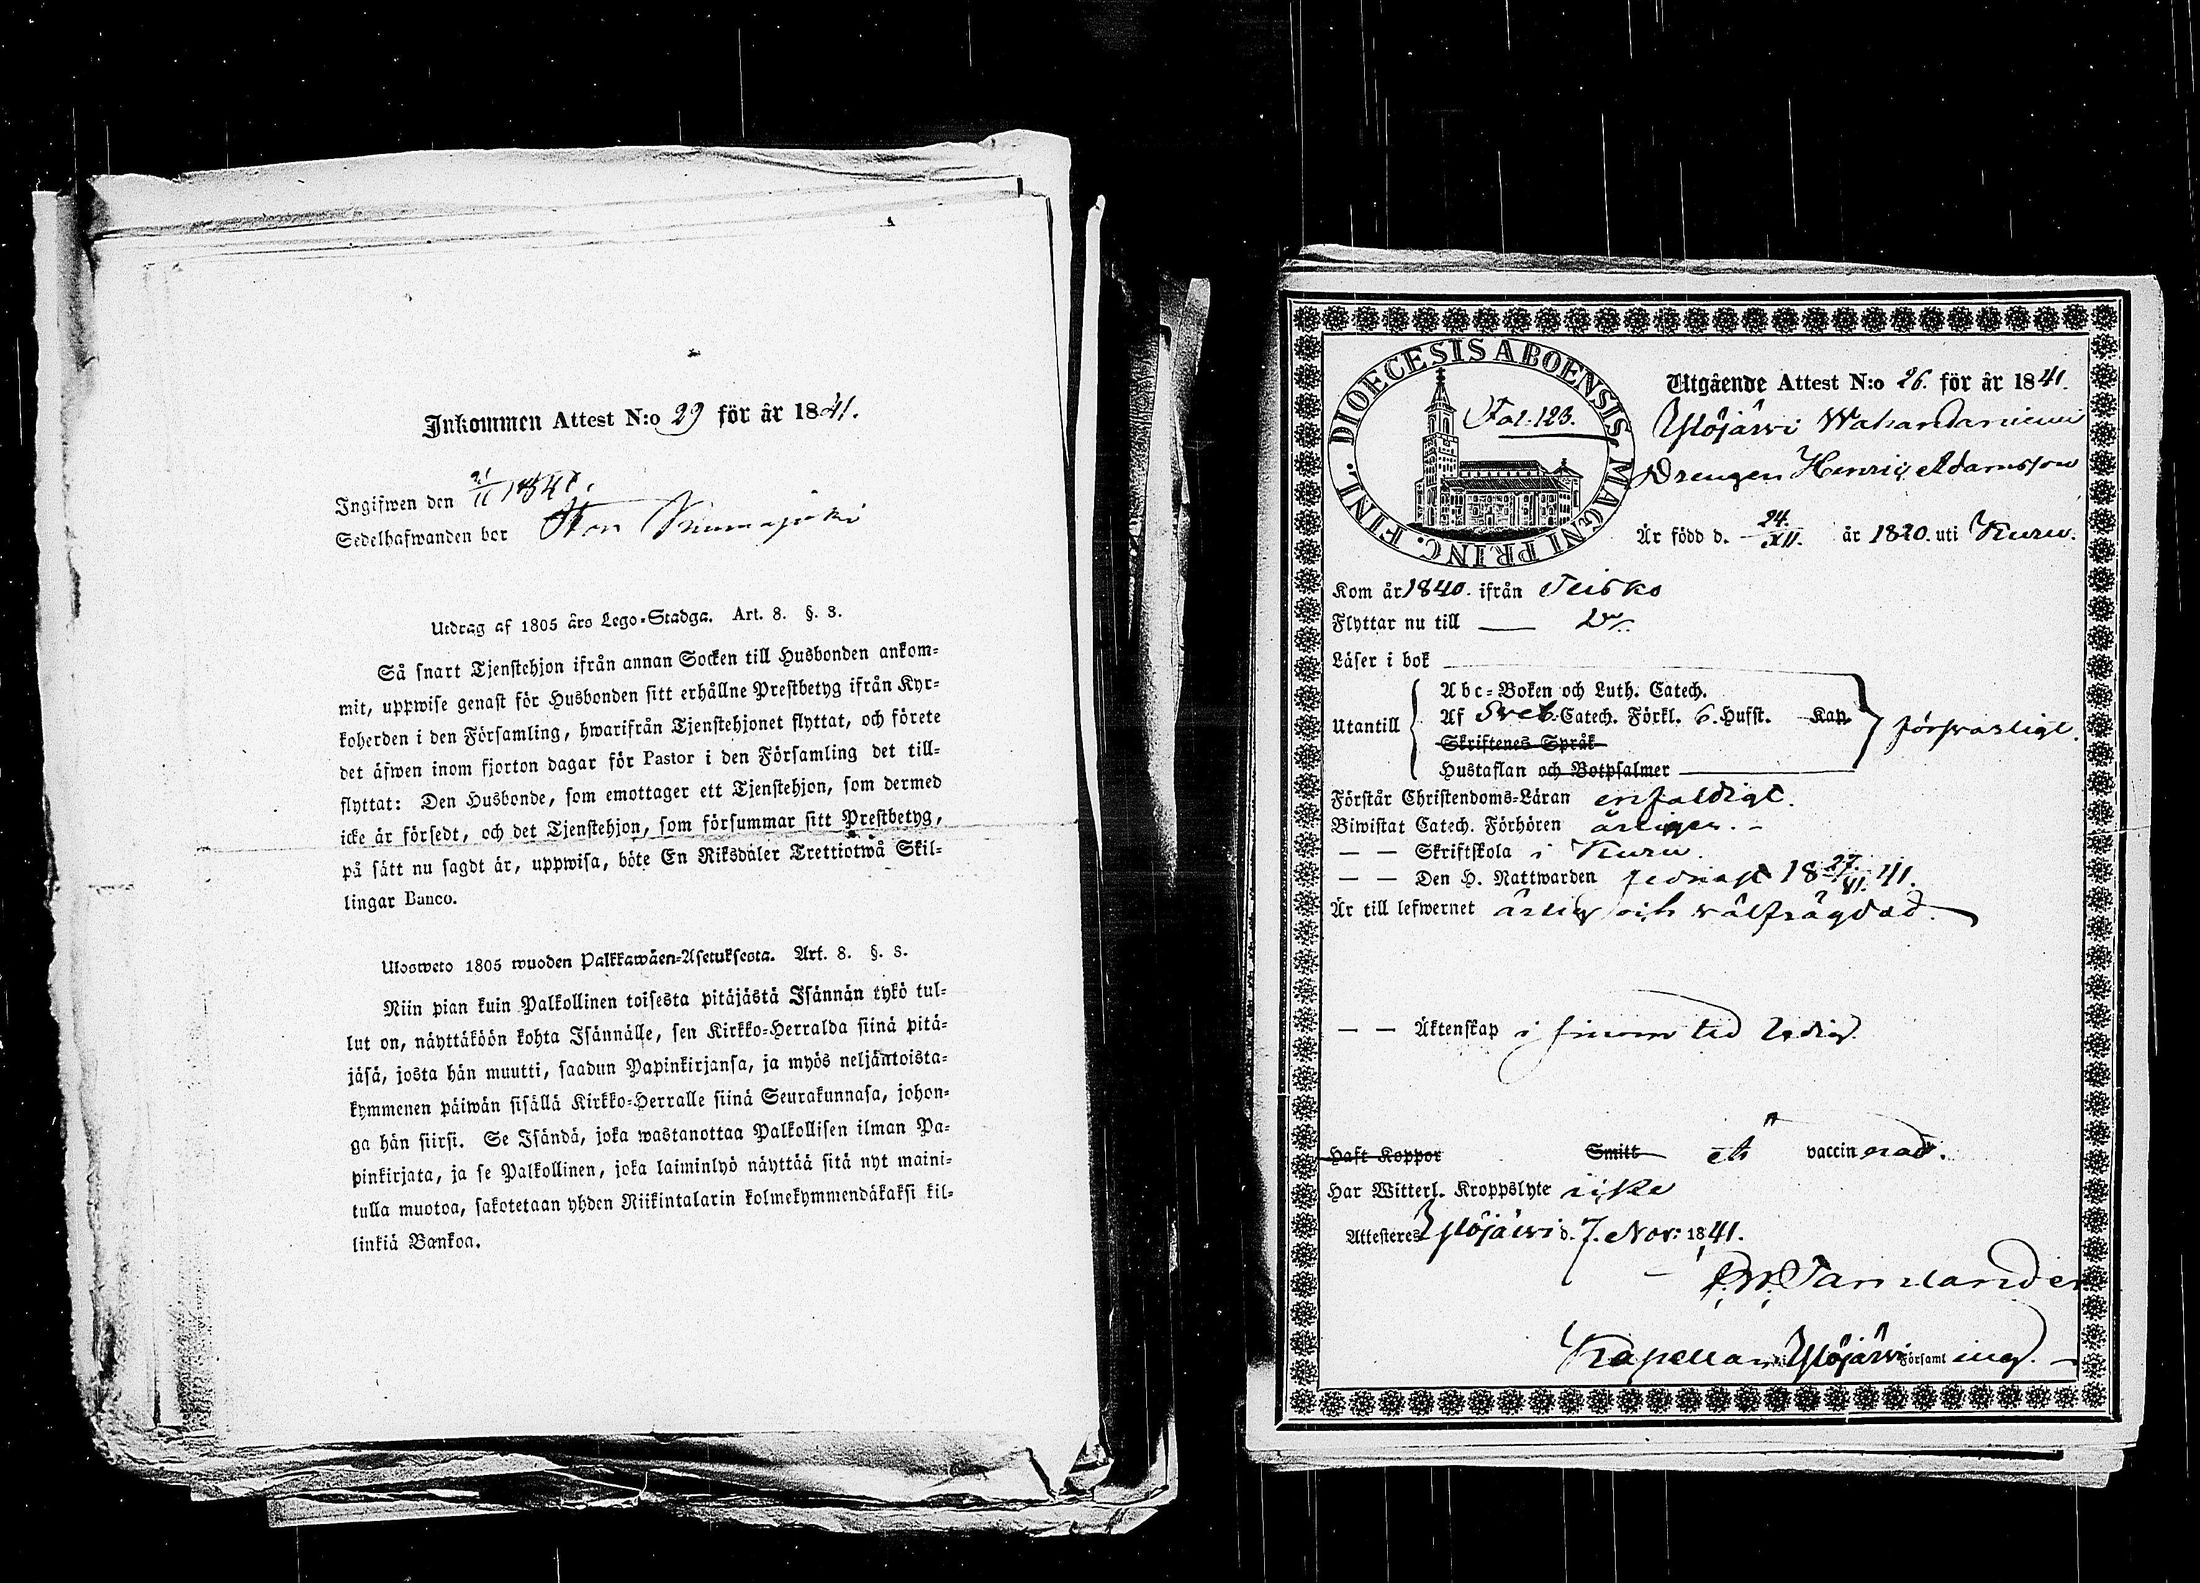 Inkommen Attest N:o 29 för år 1841.
Ingifwen den 21/11 1841.
Sedelhafwanden bor
Utdrag af 1805 års Lego-Stadga. Art. 8. §. 8.
Så snart Tjenstehjon ifrån annan Socken till Husbonden ankom-
mit, uppwise genast för Husbonden sitt erhållne Prestbetyg ifrån Kyr-
koherden i den Församling, hwarifrån Tjenstehjonet flyttat, och förete
det äfwen inom fjorton dagar för Pastor i den Församling det till-
flyttat: Den Husbonde, som emottager ett Tjenstehjon, som dermed
icke är försedt, och det Tjenstehjon, som försummar sitt Prestbetyg,
på sätt nu sagdt är, uppwisa, böte En Riksdaler Trettiotwå Skil-
lingar Banco.
Ulosweto 1805 wuoden Palkkawäen-Asetuksesta. Art. 8. §. 8.
Niin pian kuin Palkollinen toisesta pitäjästä Isännän tykö tul-
lut on, näyttäköön kohta Isännälle, sen Kirkko-Herralda siinä pitä-
jäsä, josta hän muutti, saadun Papinkirjansa, ja myös neljäntoista-
kymmenen päiwän sisällä Kirkko-Herralle siinä Seurakunnasa, johon-
ga hän siirsi. Se Isändä, joka wastanottaa Palkollisen ilman Pa-
pinkirjata, ja se Palkollinen, joka laiminlyö näyttää sitä nyt maini-
tulla muotoa, sakotetaan yhden Riikintalarin kolmekymmendäkaksi kil-
linkiä Bankoa.
DIOECESIS ABOENSIS MAGNI PRINC. FINL.
Fol. 123.
Utgående Attest N:o 26. för år 1841.
Ylöjärvi Wakandaniemi
Drengen Henric Adamsson
Är född d. 24./XII. år 1820. uti Kuru.
Kom år 1840. ifrån Teisko
Flyttar nu till
Läser i bok
Abc-Boken och Luth. Catech.
Utantill Af Sveb. Catech. Förkl. 6. Hufst. Kap. försvarligt.
Skriftenes Språk
Hustaflan och Botpsalmer
Förstår Christendoms-Läran enfaldigt.
Biwistat Catech. Förhören årligen.
— — Skriftskola i Kuru.
— — Den H. Nattwarden sednast 18 27./VI. 41.
Är till lefwernet ärlig och välfrägdad.
— — Äktenskap i sinom tid ledig.
Haft Koppor Smitt vaccinerad.
Har Witterl. Kroppslyte icke
Attesteres Ylöjärvi d. 7. Nov: 1841.
Kapellan i Ylöjärvi Församling.